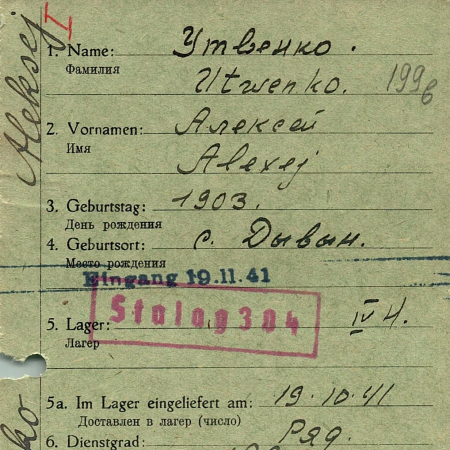 Aleksej
I
1. Name: Утвенко.
Фамилия
Utwenko.
199
2. Vornamen: Алексей
Имя
Alexej
3. Geburtstag: 1903.
День рождения
4. Geburtsort: с. Дывын.
Место рождения
Eingang 19.11.41
Stalag 304
5. Lager: IV H.
Лагер
5a. Im Lager eingeliefert am: 19.10.41
Доставлен в лагер (число)
6. Dienstgrad: Ряд.
ko